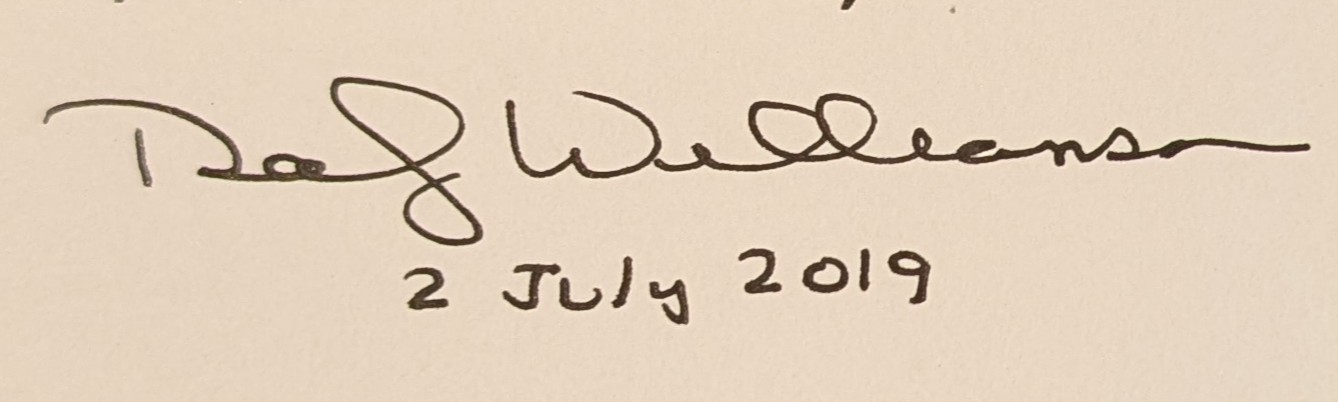 Williamson
2 July 2019